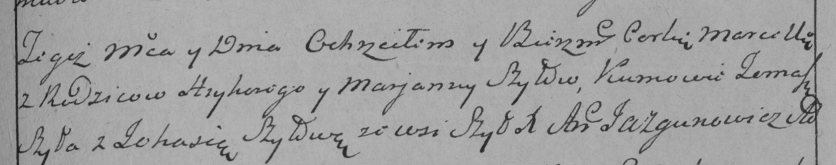 Tegiż Mca y Dnia Ochrzciłem y Bierzm. Corkię Marcellię
z Rodzicow Hryhorego y Marjanny Szyłow, Kumowie Tomasz
Szyła z Zohasią Szyłową ze wsi Szył X An Jazgunowicz